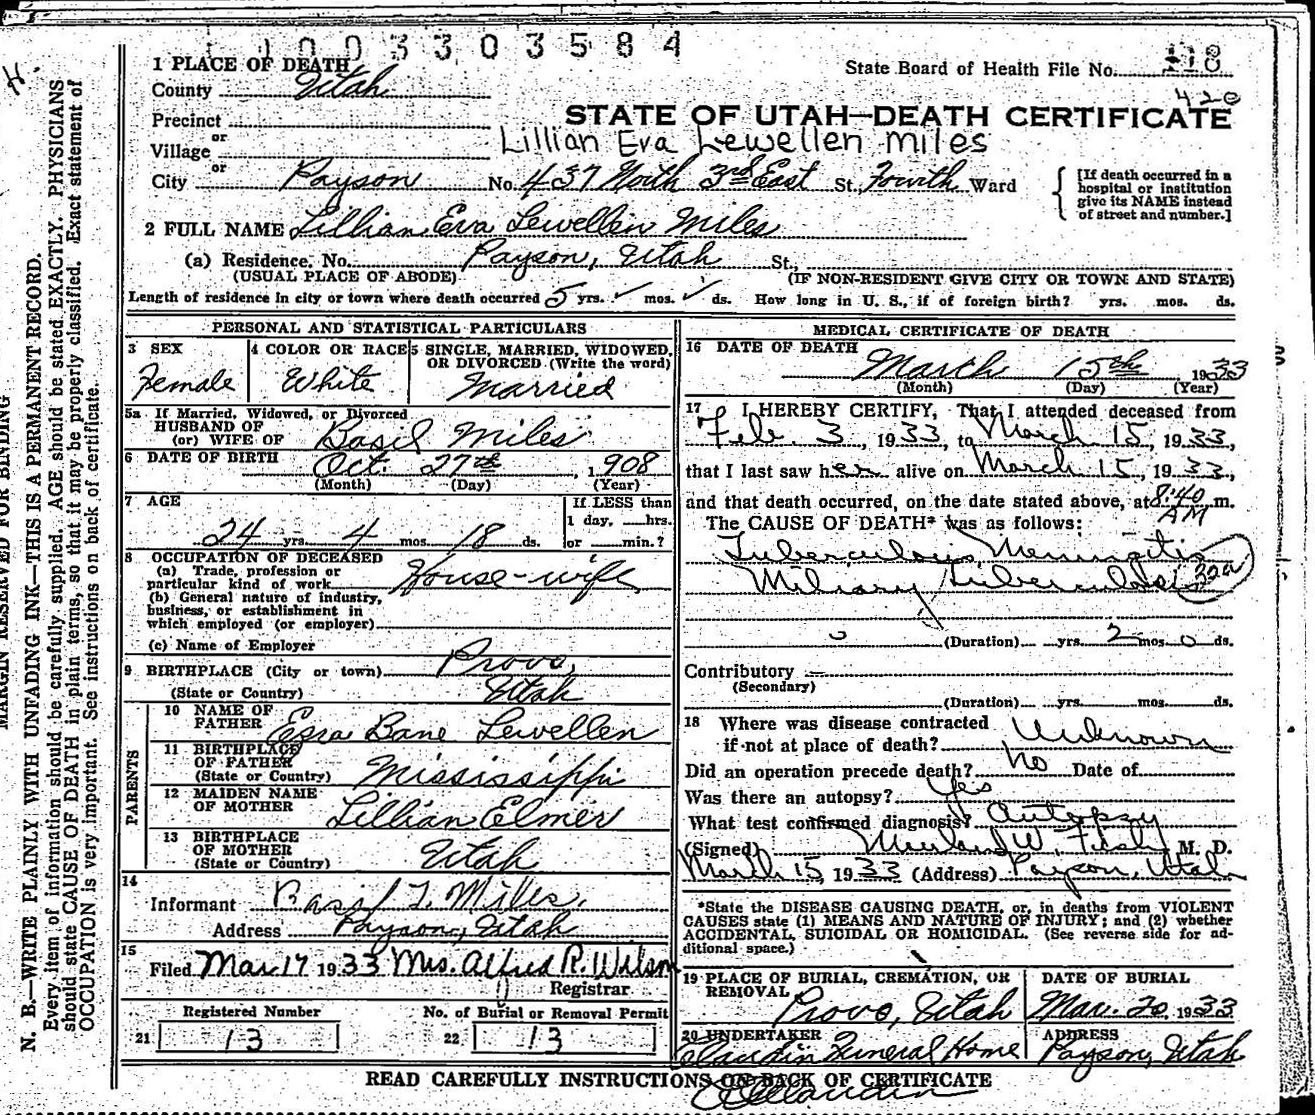 0 0 3 3 0 3 5 8 4
1 PLACE OF DEATH
State Board of Health File No. 118
420
County Utah
STATE OF UTAH—DEATH CERTIFICATE
Precinct
or
Lillian Eva Lewellen Miles
Village
or
City Payson No. 437 North 3rd East St. Fourth Ward
[If death occurred in a
hospital or institution
give its NAME instead
of street and number.]
2 FULL NAME Lillian Eva Lewellen Miles
(a) Residence, No. Payson, Utah St.,
(USUAL PLACE OF ABODE) (IF NON-RESIDENT GIVE CITY OR TOWN AND STATE)
Length of residence in city or town where death occurred 5 yrs. ✓ mos. ✓ ds. How long in U. S., if of foreign birth? yrs. mos. ds.
PERSONAL AND STATISTICAL PARTICULARS
3 SEX
Female
4 COLOR OR RACE
White
5 SINGLE, MARRIED, WIDOWED,
OR DIVORCED (Write the word)
Married
5a If Married, Widowed, or Divorced
HUSBAND OF
(or) WIFE OF Basil Miles
6 DATE OF BIRTH Oct. 27th, 1908
(Month) (Day) (Year)
7 AGE
24 yrs. 4 mos. 18 ds.
If LESS than
1 day, hrs.
or min.?
8 OCCUPATION OF DECEASED
(a) Trade, profession or
particular kind of work House-wife
(b) General nature of industry,
business, or establishment in
which employed (or employer)
(c) Name of Employer
9 BIRTHPLACE (City or town) Provo,
(State or Country) Utah
PARENTS
10 NAME OF
FATHER Ezra Bane Lewellen
11 BIRTHPLACE
OF FATHER
(State or Country) Mississippi
12 MAIDEN NAME
OF MOTHER Lillian Elmer
13 BIRTHPLACE
OF MOTHER
(State or Country) Utah
14
Informant Basil T. Miles,
Address Payson, Utah
15
Filed Mar 17 1933 Mrs. Alfred R. Wilson
Registrar
Registered Number
21 13
No. of Burial or Removal Permit
22 13
MEDICAL CERTIFICATE OF DEATH
16 DATE OF DEATH
March 15th 1933
(Month) (Day) (Year)
17 I HEREBY CERTIFY, That I attended deceased from
Feb. 3, 1933, to March 15, 1933,
that I last saw her alive on March 15, 1933,
and that death occurred, on the date stated above, at 8:40 m.
AM
The CAUSE OF DEATH* was as follows:
Tuberculous Meningitis
Miliary Tuberculosis 32a
(Duration) yrs. 2 mos. 0 ds.
Contributory
(Secondary)
(Duration) yrs. mos. ds.
18 Where was disease contracted
if not at place of death? Unknown
Did an operation precede death? No Date of
Was there an autopsy? Yes
What test confirmed diagnosis? Autopsy
(Signed) M. D.
March 15, 1933 (Address) Payson, Utah
*State the DISEASE CAUSING DEATH, or, in deaths from VIOLENT
CAUSES state (1) MEANS AND NATURE OF INJURY; and (2) whether
ACCIDENTAL, SUICIDAL OR HOMICIDAL. (See reverse side for ad-
ditional space.)
19 PLACE OF BURIAL, CREMATION, OR
REMOVAL
Provo, Utah
DATE OF BURIAL
Mar. 20, 1933
20 UNDERTAKER
Claudin Funeral Home
ADDRESS
Payson, Utah
READ CAREFULLY INSTRUCTIONS ON BACK OF CERTIFICATE
MARGIN RESERVED FOR BINDING
N. B.—WRITE PLAINLY WITH UNFADING INK—THIS IS A PERMANENT RECORD.
Every item of information should be carefully supplied. AGE should be stated EXACTLY. PHYSICIANS
should state CAUSE OF DEATH in plain terms, so that it may be properly classified. Exact statement of
OCCUPATION is very important. See instructions on back of certificate.